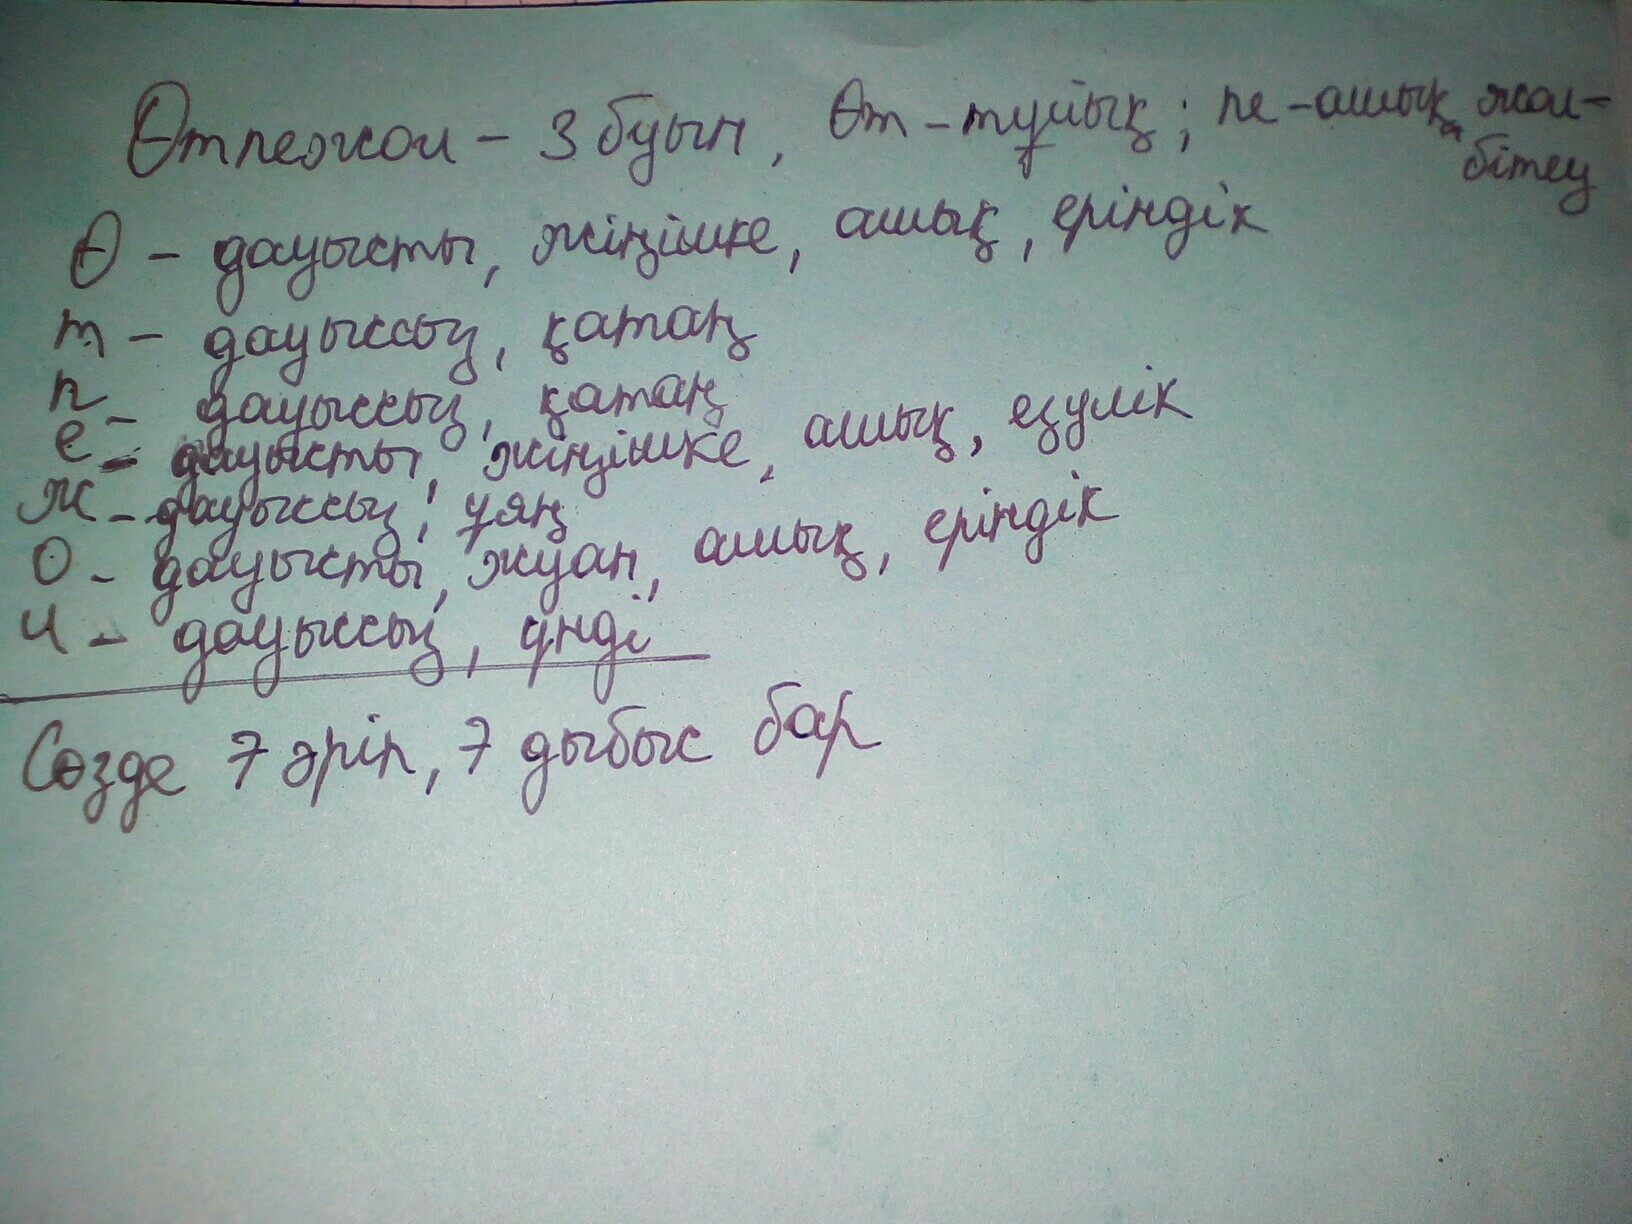 Өтпежол - 3 буын, Өт - тұйық; пе - ашық, жол -
бітеу
Ө - дауысты, жіңішке, ашық, еріндік
т - дауыссыз, қатаң
п - дауыссыз, қатаң
е - дауысты, жіңішке, ашық, езулік
ж - дауыссыз, ұяң
о - дауысты, жуан, ашық, еріндік
л - дауыссыз, үнді
Сөзде 7 әріп, 7 дыбыс бар